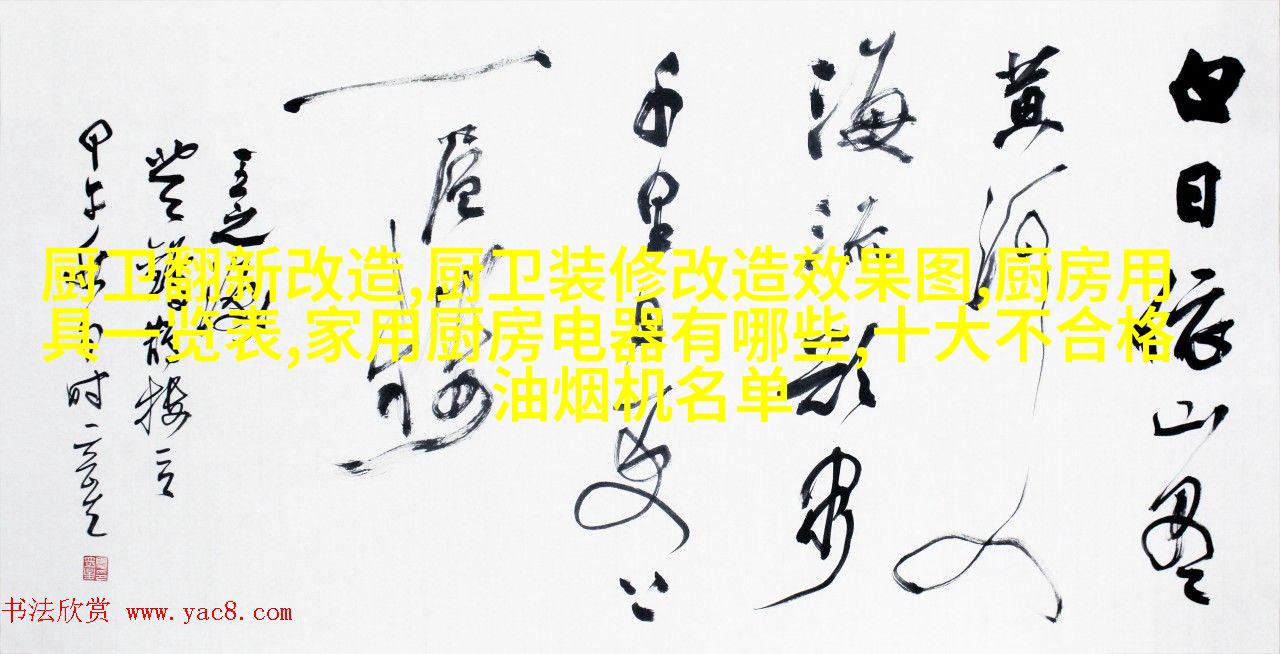 白日依山尽
黄河入
海流欲穷
千里目更上
一层楼
王之涣
登鹳雀楼
甲午秋月时
厨卫翻新改造,厨卫装修改造效果图,厨房用
具一览表,家用厨房电器有哪些,十大不合格
油烟机名单
书法欣赏 www.yac8.com